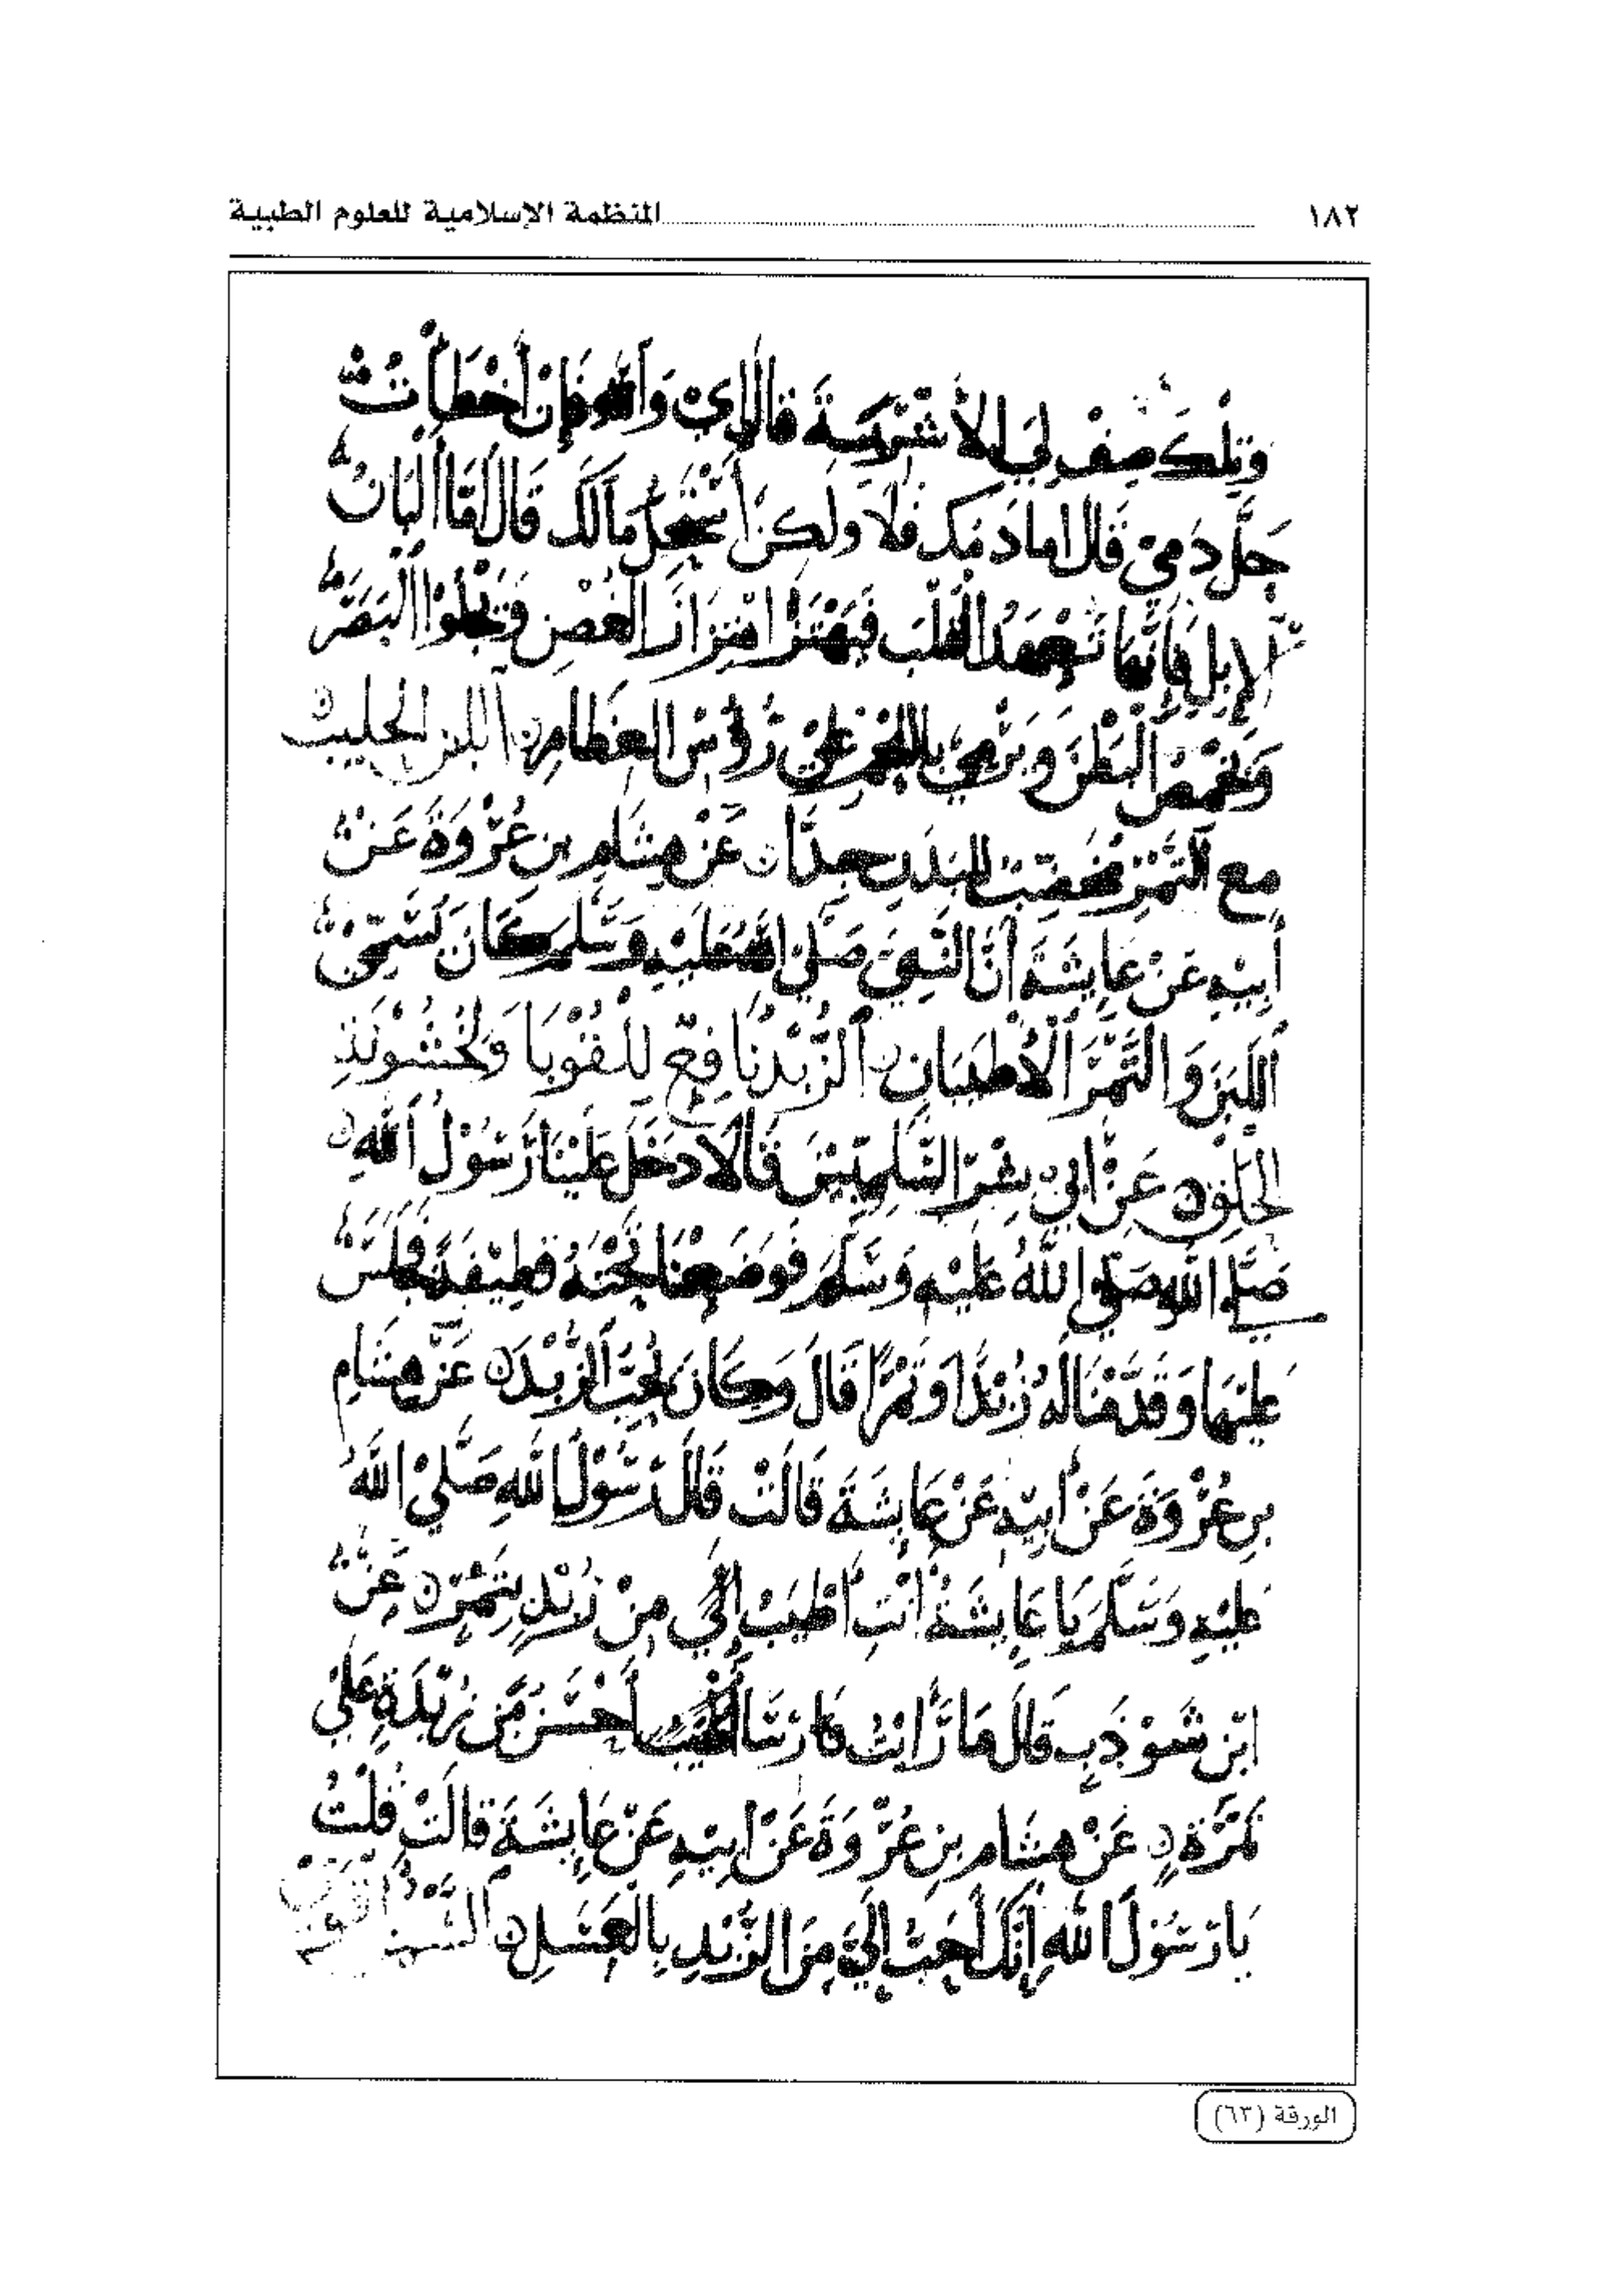 ١٨٢ المنظمة الإسلامية للعلوم الطبية
وَيْلَكَ صِفْ لِي الأَشْرِبَةَ قال إي وَاللهِ فَإِنْ أَخْطَأْتُ
حَلَّ دَمِي قَالَ اما دَمك فلا ولَكن أسْتَحِلُّ مَالَكَ قَالَ أَمَّا أَلْبَانُ
الإِبِلِ فَإِنَّهَا تَعْمَدُ القَلْبَ فَيَهْتَزُّ اهْتِزَازَ الغُصْنِ وَتَجْلُوا الْبَصَرَ
وَتَخْمصُ الْبَطْنَ وَيَرْمِي بِاللحْمِ عَلَى رُؤُسِ العِظَامِ اللبن الحليب
مع التَّمْرِ مخصب للبَدَن جِدًّا عَنْ هِشَامِ بنِ عُرْوَةَ عَنْ
أَبِيْهِ عَنْ عَايِشَةَ أَنَّ النَّبِيَّ صَلَّى اللهُ عَلَيْهِ وَسَلَّمَ كَانَ يُسَمِّي
اللَّبَنَ وَالتَّمْرَ الأَطْيَبَانِ الزُّبْدُ نَافِعٌ لِلْقُوْبَا وَلخُشُوْنَةِ
الحَلْقِ عَنْ ابْنَيْ بِسْرٍ السُّلَمِيَّيْنِ قَالا دَخَلَ عَلَيْنَا رَسُوْلُ اللهِ
صَلَّى الله صَلَّى اللهُ عَلَيْهِ وَسَلَّمَ فَوَضَعْنَا تَحْتَهُ قَطِيْفَةً فَجَلَسَ
عَلَيْهَا وَقَدَّمْنَا لَهُ زُبْدًا وَتَمْرًا قَالَ وَكَانَ يُحِبُّ الزُّبْدَ عَنْ هِشَامِ
بنِ عُرْوَةَ عَنْ أَبِيْهِ عَنْ عَايِشَةَ قَالَتْ قَالَ رَسُوْلُ اللهِ صَلَّى اللهُ
عَلَيْهِ وَسَلَّمَ يَا عَايِشَةُ أَنْتِ أَطْيَبُ إِلَيَّ مِنْ زُبْدٍ بِتَمْرٍ عَنْ
ابْن شَوْذَبٍ قَالَ مَا رَأَيْتُ فَارِسًا أَحْسَنَ مِنْ زُبْدَةٍ عَلَى
تَمْرَةٍ عَنْ هِشَامِ بنِ عُرْوَةَ عَنْ أَبِيْهِ عَنْ عَايِشَةَ قَالَتْ قُلْتُ
يَا رَسُوْلَ اللهِ إِنَّكَ أَحَبُّ إِلَيَّ مِنَ الزُّبْدِ بِالْعَسَلِ السَّمْنُ أقوى
الورقة (٦٣)